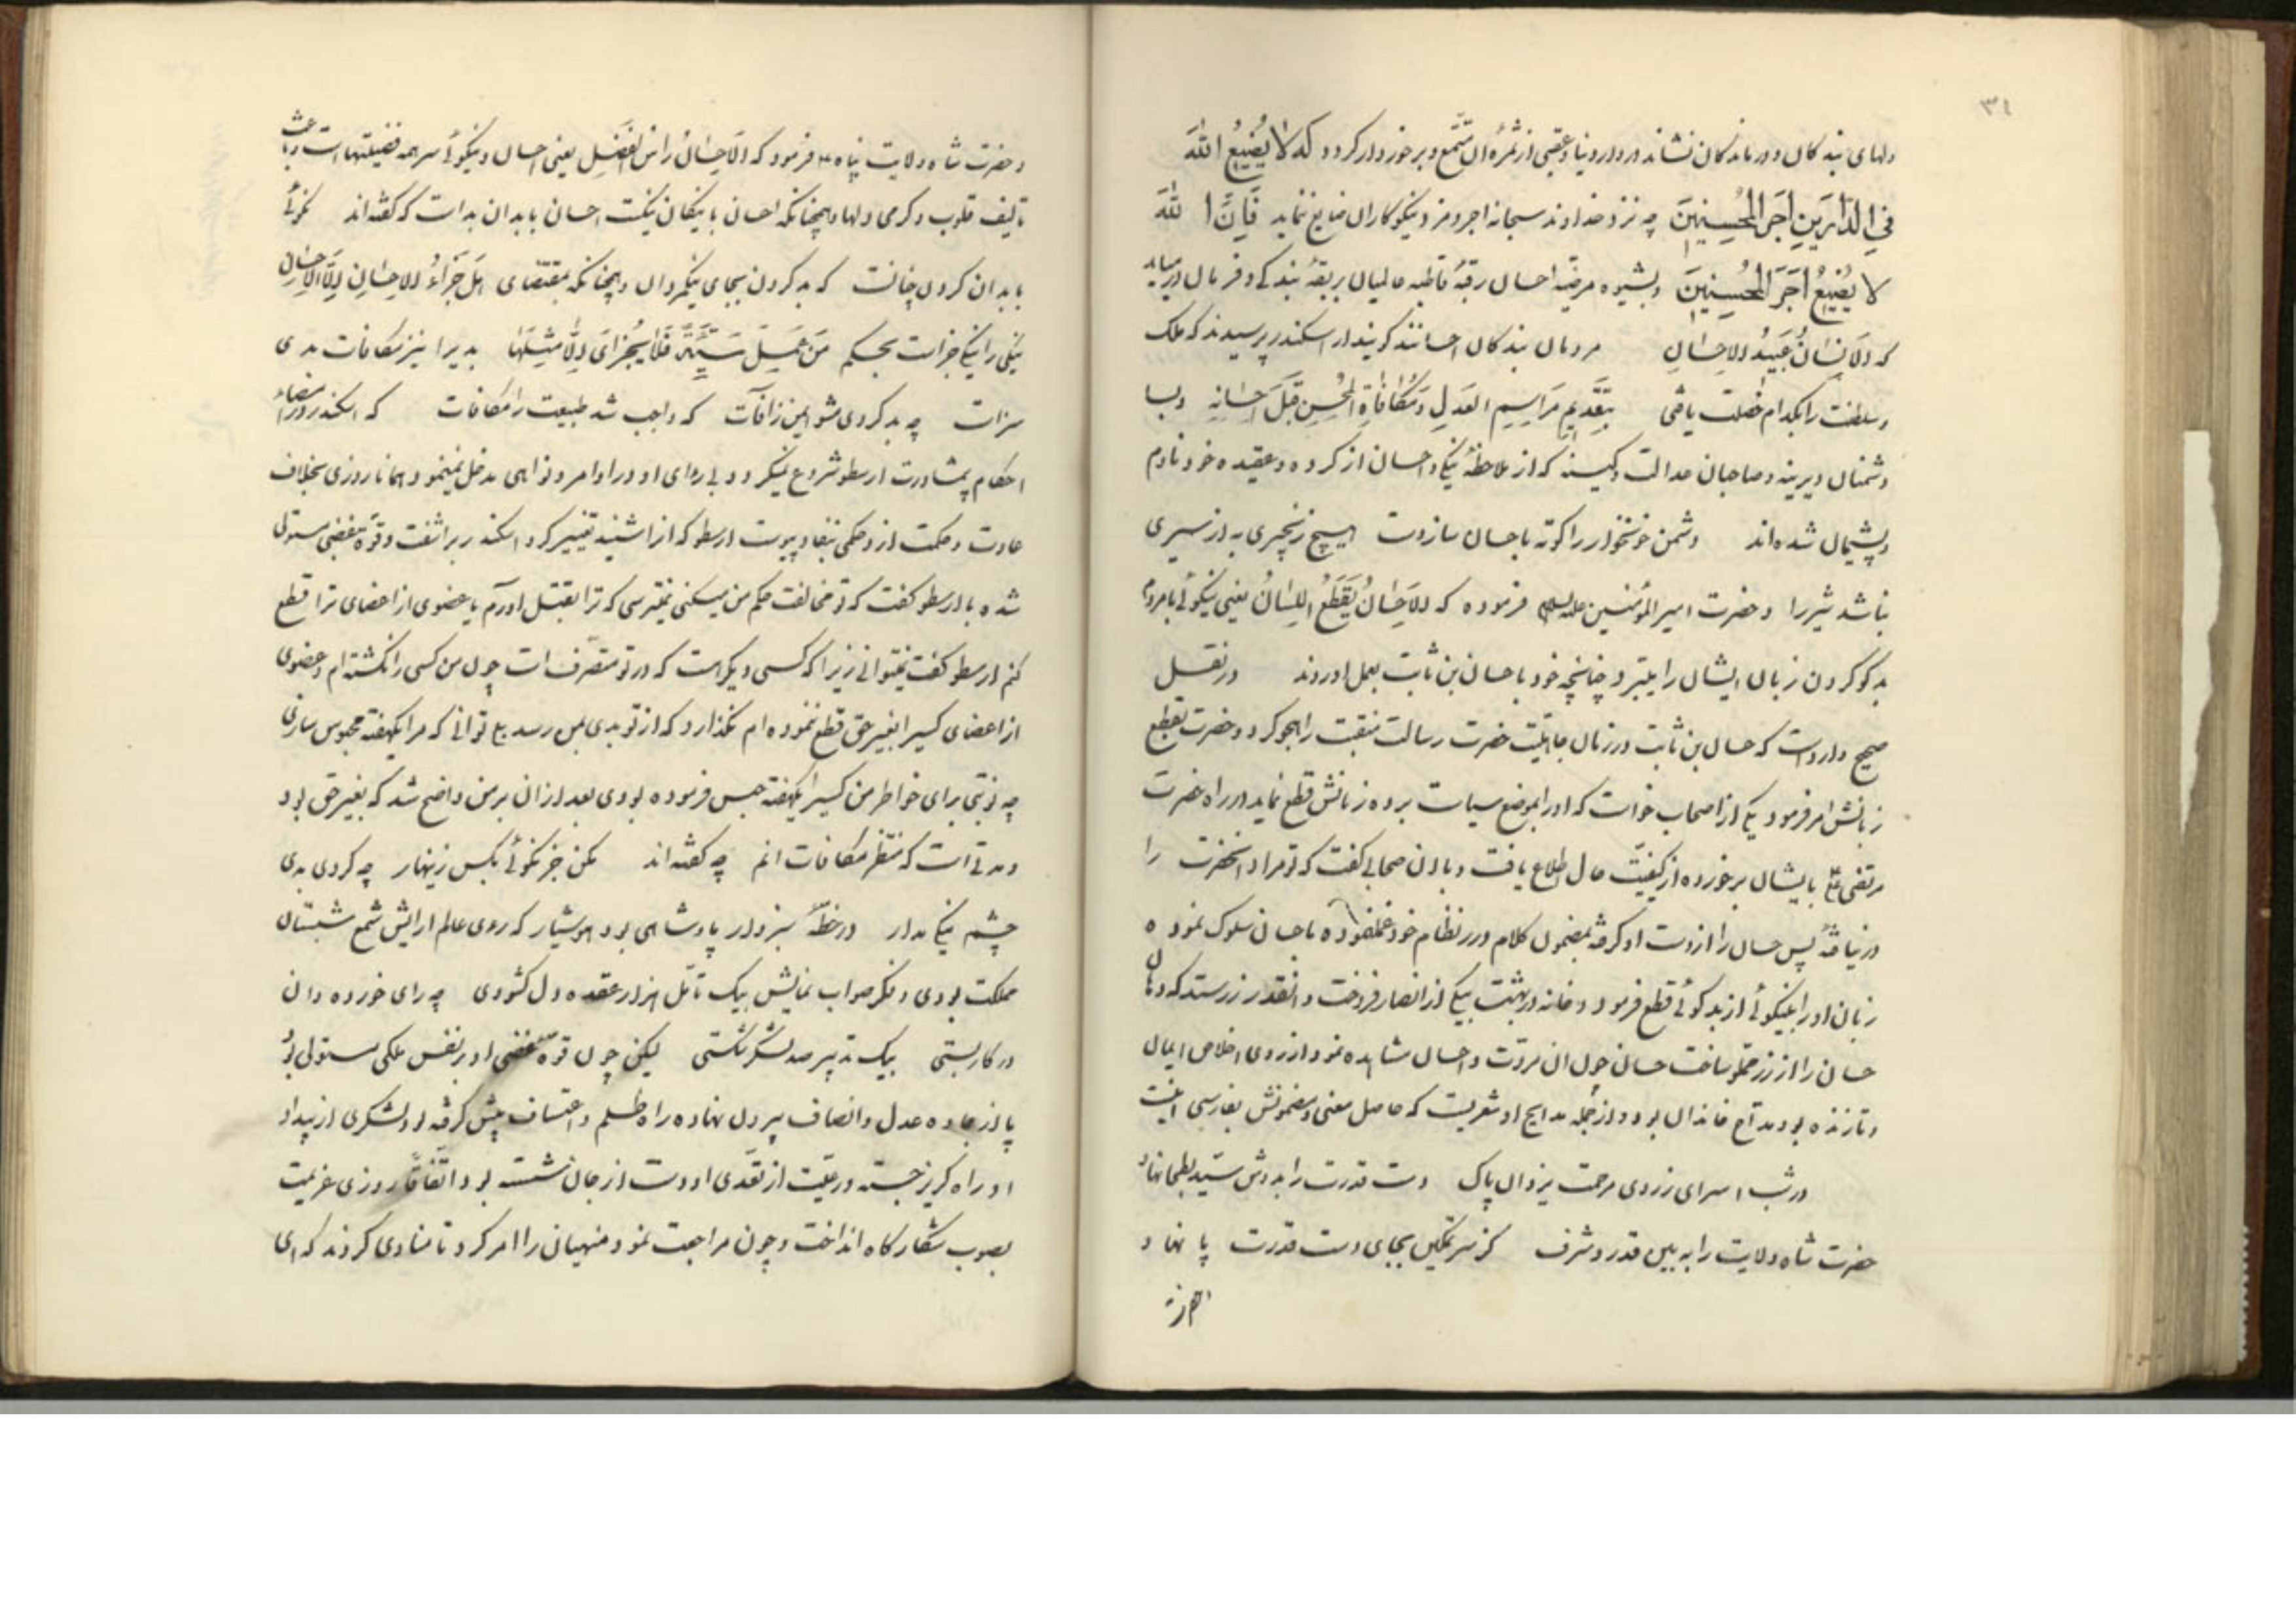 ۳۱
دلهای بندکان و درماندکان نشاند در دار دنیا و عقبی از ثمرهٔ ان متمتع و برخوردار کردد که لا یُضیعُ اللهَ
فی الدارین اجر المحسنین چه نزد خداوند سبحانه اجر و مزد نیکوکاران ضایع نماید فَاِنَّ اللهَ
لا یُضیعُ اَجرَ المُحسنینَ و بشیوه مرضیّه احسان رقبهٔ قاطبه عالمیان بربقهٔ بندکی و فرمان درمیاید
که الانسانُ عَبیدُ الاحسانِ مردمان بندکان احسانند کویند از اسکندر پرسیدند که ملک
و سلطنت را بکدام خصلت یافتی بتقدیمِ مَراسِمِ العَدلِ وَ مُکافاةِ المُحسنِ قَبلَ اِحسانِهِ و بسا
دشمنان دیرینه و صاحبان عداوت و کینه که از ملاحظهٔ نیکی و احسان از کرده و عقیده خود نادم
و پشیمان شده‌اند دشمن خونخوار را کوته باحسان ساز دست هیچ زنجیری به از سیری
نباشد شیر را و حضرت امیر المؤمنین علیه السلام فرموده که الاحسانُ یَقطَعُ اللِسانُ یعنی نیکوئی با مردم
بدکو کردن زبان ایشان را میبرد چنانچه خود با حسان بن ثابت بعمل اوردند در نقل
صحیح وارد است که حسان بن ثابت در زمان جاهلیّت حضرت رسالت منقبت را هجو کرد و حضرت بقطع
زبانش امر فرمود یکی از اصحاب خواست که او را بموضع سیاست برده زبانش قطع نماید در راه حضرت
مرتضی علی بایشان برخورده از کیفیّت حال اطلاع یافت و باون صحابی کفت که تو مراد انحضرت را
درنیافتهٔ پس حسان را از دست او کرفته بمضمون کلام درر نظام خود عمل فرموده با حسان سلوک نموده
زبان او را بنیکوئی از بدکوئی قطع فرمود و خانه در بهشت بیکی از انصار فروخت و انقدر زر ستد که دهان
حسان را از زر مملو ساخت حسان چون ان مروّت و احسان مشاهده نمود از روی اخلاص ایمان
و تا زنده بود مداح خاندان بود و از جمله مدایح او شعریست که حاصل معنی و مضمونش بفارسی اینست
در شب اسرای ز روی مرحمت یزدان پاک دست قدرت را بدوش سیّد بطحا نهاد
حضرت شاه ولایت را به بین قدر و شرف کز سر تمکین بجای دست قدرت پا نهاد
و حضرت شاه ولایت پناه ع فرمود که الاحسانُ راسُ الفضلِ یعنی احسان و نیکوئی سر همه فضیلتهاست و باعث
تالیف قلوب و کرمی دلها و همچنانکه احسان با نیکان نیکست احسان با بدان بد است که کفته‌اند نکوئی
با بدان کردن چنانست که بد کردن بجای نیکمردان و همچنانکه بمقتضای هَل جَزاءُ الاِحسانِ اِلاَّ الاِحسان
نیکی را نیکی جزاست بحکم مَن عَمِلَ سَیِّئَةً فَلا یُجزای اِلاّ مِثلَها بدیرا نیز مکافات بدی
سزاست چه بد کردی مشو ایمن ز افات که واجب شد طبیعت را مکافات که اسکندر در امضاء
احکام بمشاورت ارسطو شروع نمیکرد و بی رای او در اوامر و نواهی مدخل نمینمود همانا روزی بخلاف
عادت و حکمت از وی حکمی بنفاد پیوست ارسطو که از انشنید تغییر کرد اسکندر براشفت و قوّه غضبی مستولی
شده با ارسطو کفت که تو مخالفت حکم من میکنی نمیترسی که ترا بقتل اورم یا عضوی از اعضای ترا قطع
کنم ارسطو کفت نمیتوانی زیرا که کسی دیکر هست که در تو متصرف است چون من کسی را نکشته‌ام و عضوی
از اعضای کسیرا بغیر حق قطع ننموده‌ام نکذارد که از تو بدی بمن رسد بلی توانی که مرا یکهفته محبوس سازی
چه نوبتی برای خواطر من کسیرا یکهفته حبس فرموده بودی بعد از ان بر من واضح شد که بغیر حق بود
و مدتی است که منتظر مکافات انم چه کفته‌اند مکن جز نکوئی بکس زینهار چه کردی بدی
چشم نیکی مدار در خطّه سبزوار پادشاهی بود هوشیار که روی عالم ارایش شمع شبستان
مملکت بودی و فکر صواب نمایش بیک تأمّل هزار عقده دل کشودی چه رای خورده دان
در کار بستی بیک تدبیر صد لشکر شکستی لیکن چون قوّه غضبی او بر نفس ملکی مستولی بود
پا از جاده عدل و انصاف بیرون نهاده راه ظلم و اعتساف پیش کرفته بود لشکری از بیداد
او راه کریز جسته و رعیّت از تعدّی او دست از جان شسته بود اتّفاقاً روزی عزیمت
بصوب شکارکاه انداخت و چون مراجعت نمود منهیان را امر کرد تا منادی کردند که ای